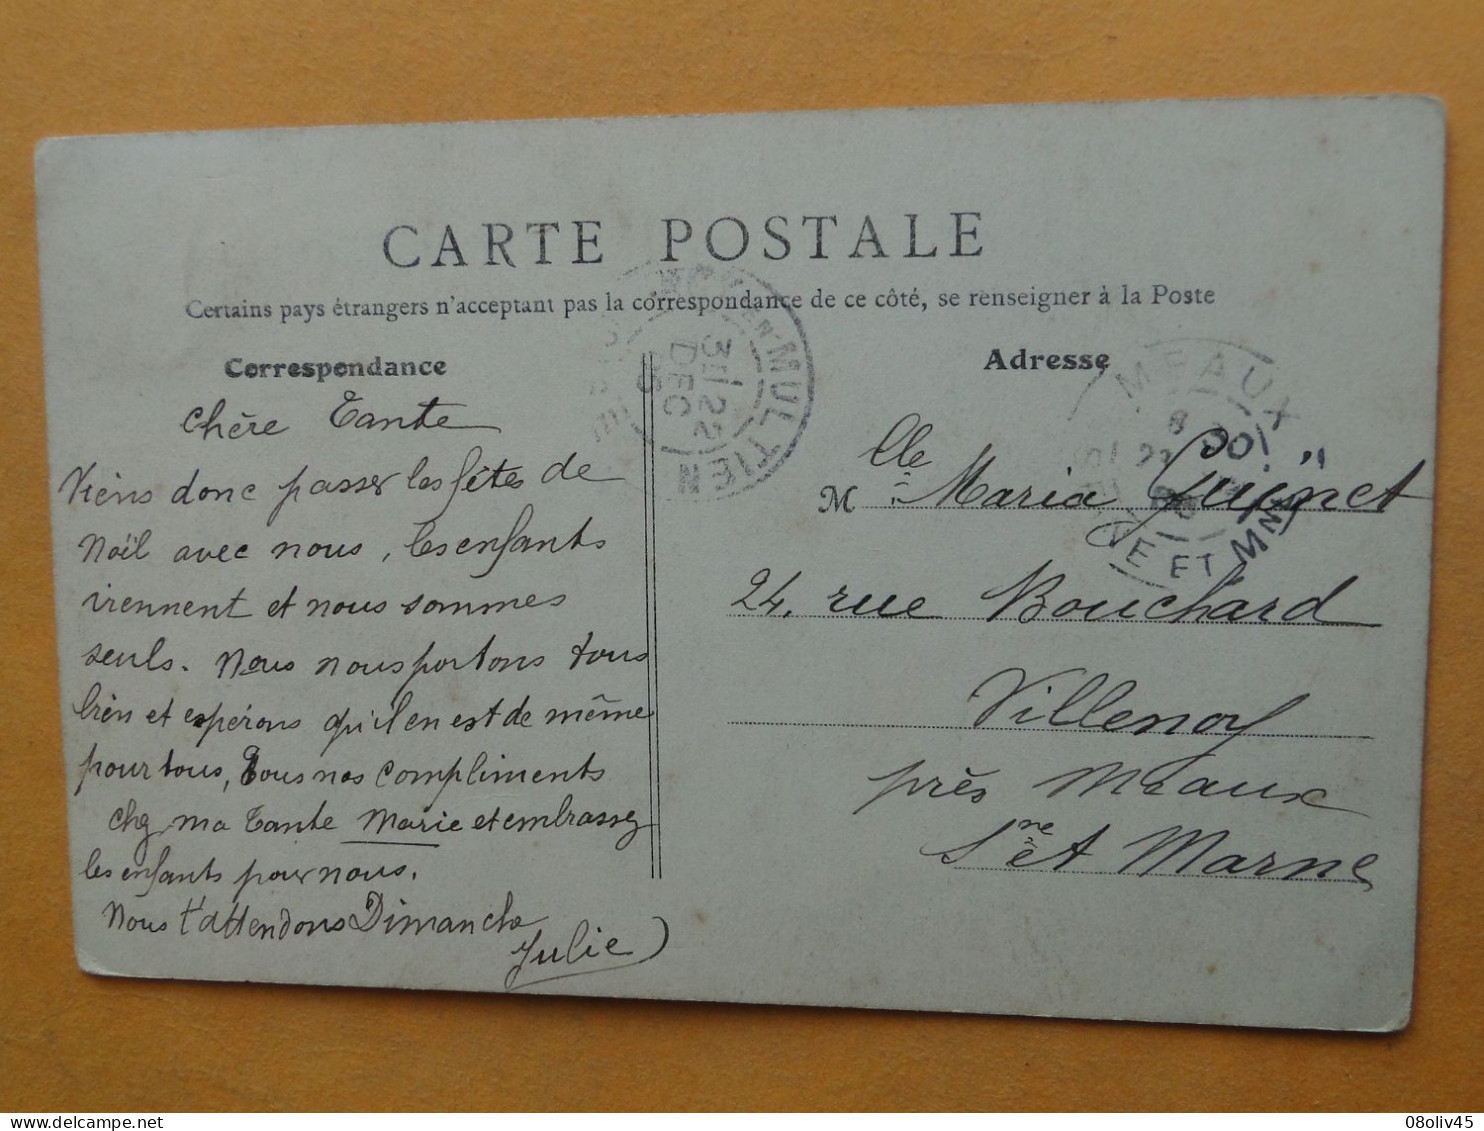 CARTE POSTALE
Certains pays étrangers n'acceptant pas la correspondance de ce côté, se renseigner à la Poste
Correspondance
Chère Tante
Viens donc passer les fêtes de
Noël avec nous, les enfants
viennent et nous sommes
seuls. Nous nous portons tous
bien et espérons qu'il en est de même
pour tous, Tous nos compliments
chez ma Tante Marie et embrassez
les enfants pour nous.
Nous t'attendons Dimanche
Julie
MULTIEN
3E / 22
DEC
Adresse
Mlle Maria Guignet
24, rue Bouchard
Villenoy
près Meaux
Sne et Marne
MEAUX
NE ET MNE
08oliv45